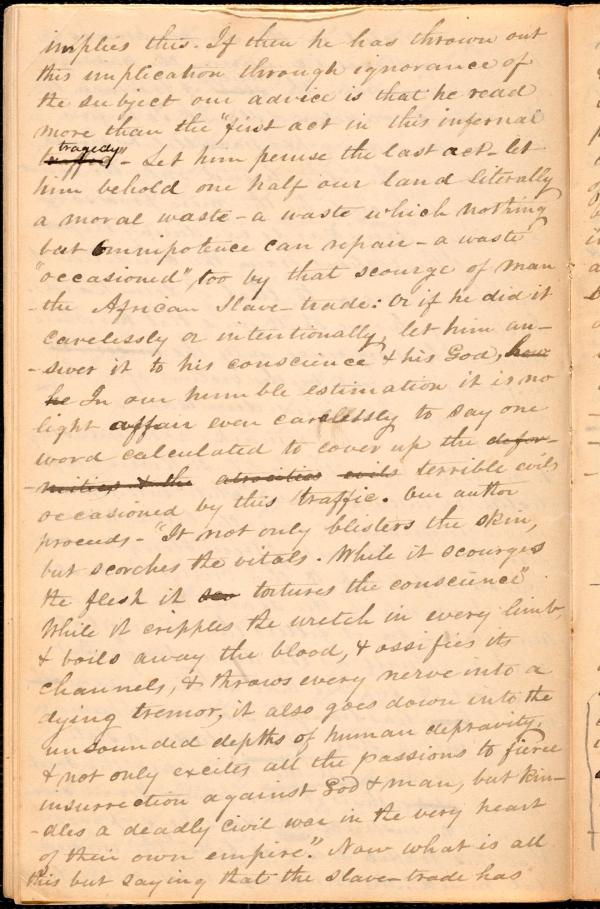 implies this. If then he has thrown out
this implication through ignorance of
the subject our advice is that he read
more than the "first act in this infernal
tragedy
traffic" - Let him peruse the last act - let
him behold one half our land literally
a moral waste - a waste which nothing
but Omnipotence can repair - a waste
"occasioned", too by that scourge of man
- the African Slave-trade: Or if he did it
carelessly or intentionally, let him an-
- swer it to his conscience & his God, how
he In our humble estimation it is no
light affair even carelessly to say one
word calculated to cover up the defor-
- mities & the atrocities evils terrible evils
occasioned by this traffic. Our author
proceeds - "It not only blisters the skin,
but scorches the vitals. While it scourges
the flesh it sco tortures the conscience"
While it cripples the wretch in every limb,
& boils away the blood, & ossifies its
channels, & throws every nerve into a
dying tremor, it also goes down into the
unsounded depths of human depravity,
& not only excites all the passions to fierce
insurrection against God & man, but kin-
- dles a deadly civil war in the very heart
of their own empire." Now what is all
this but saying that the slave-trade has